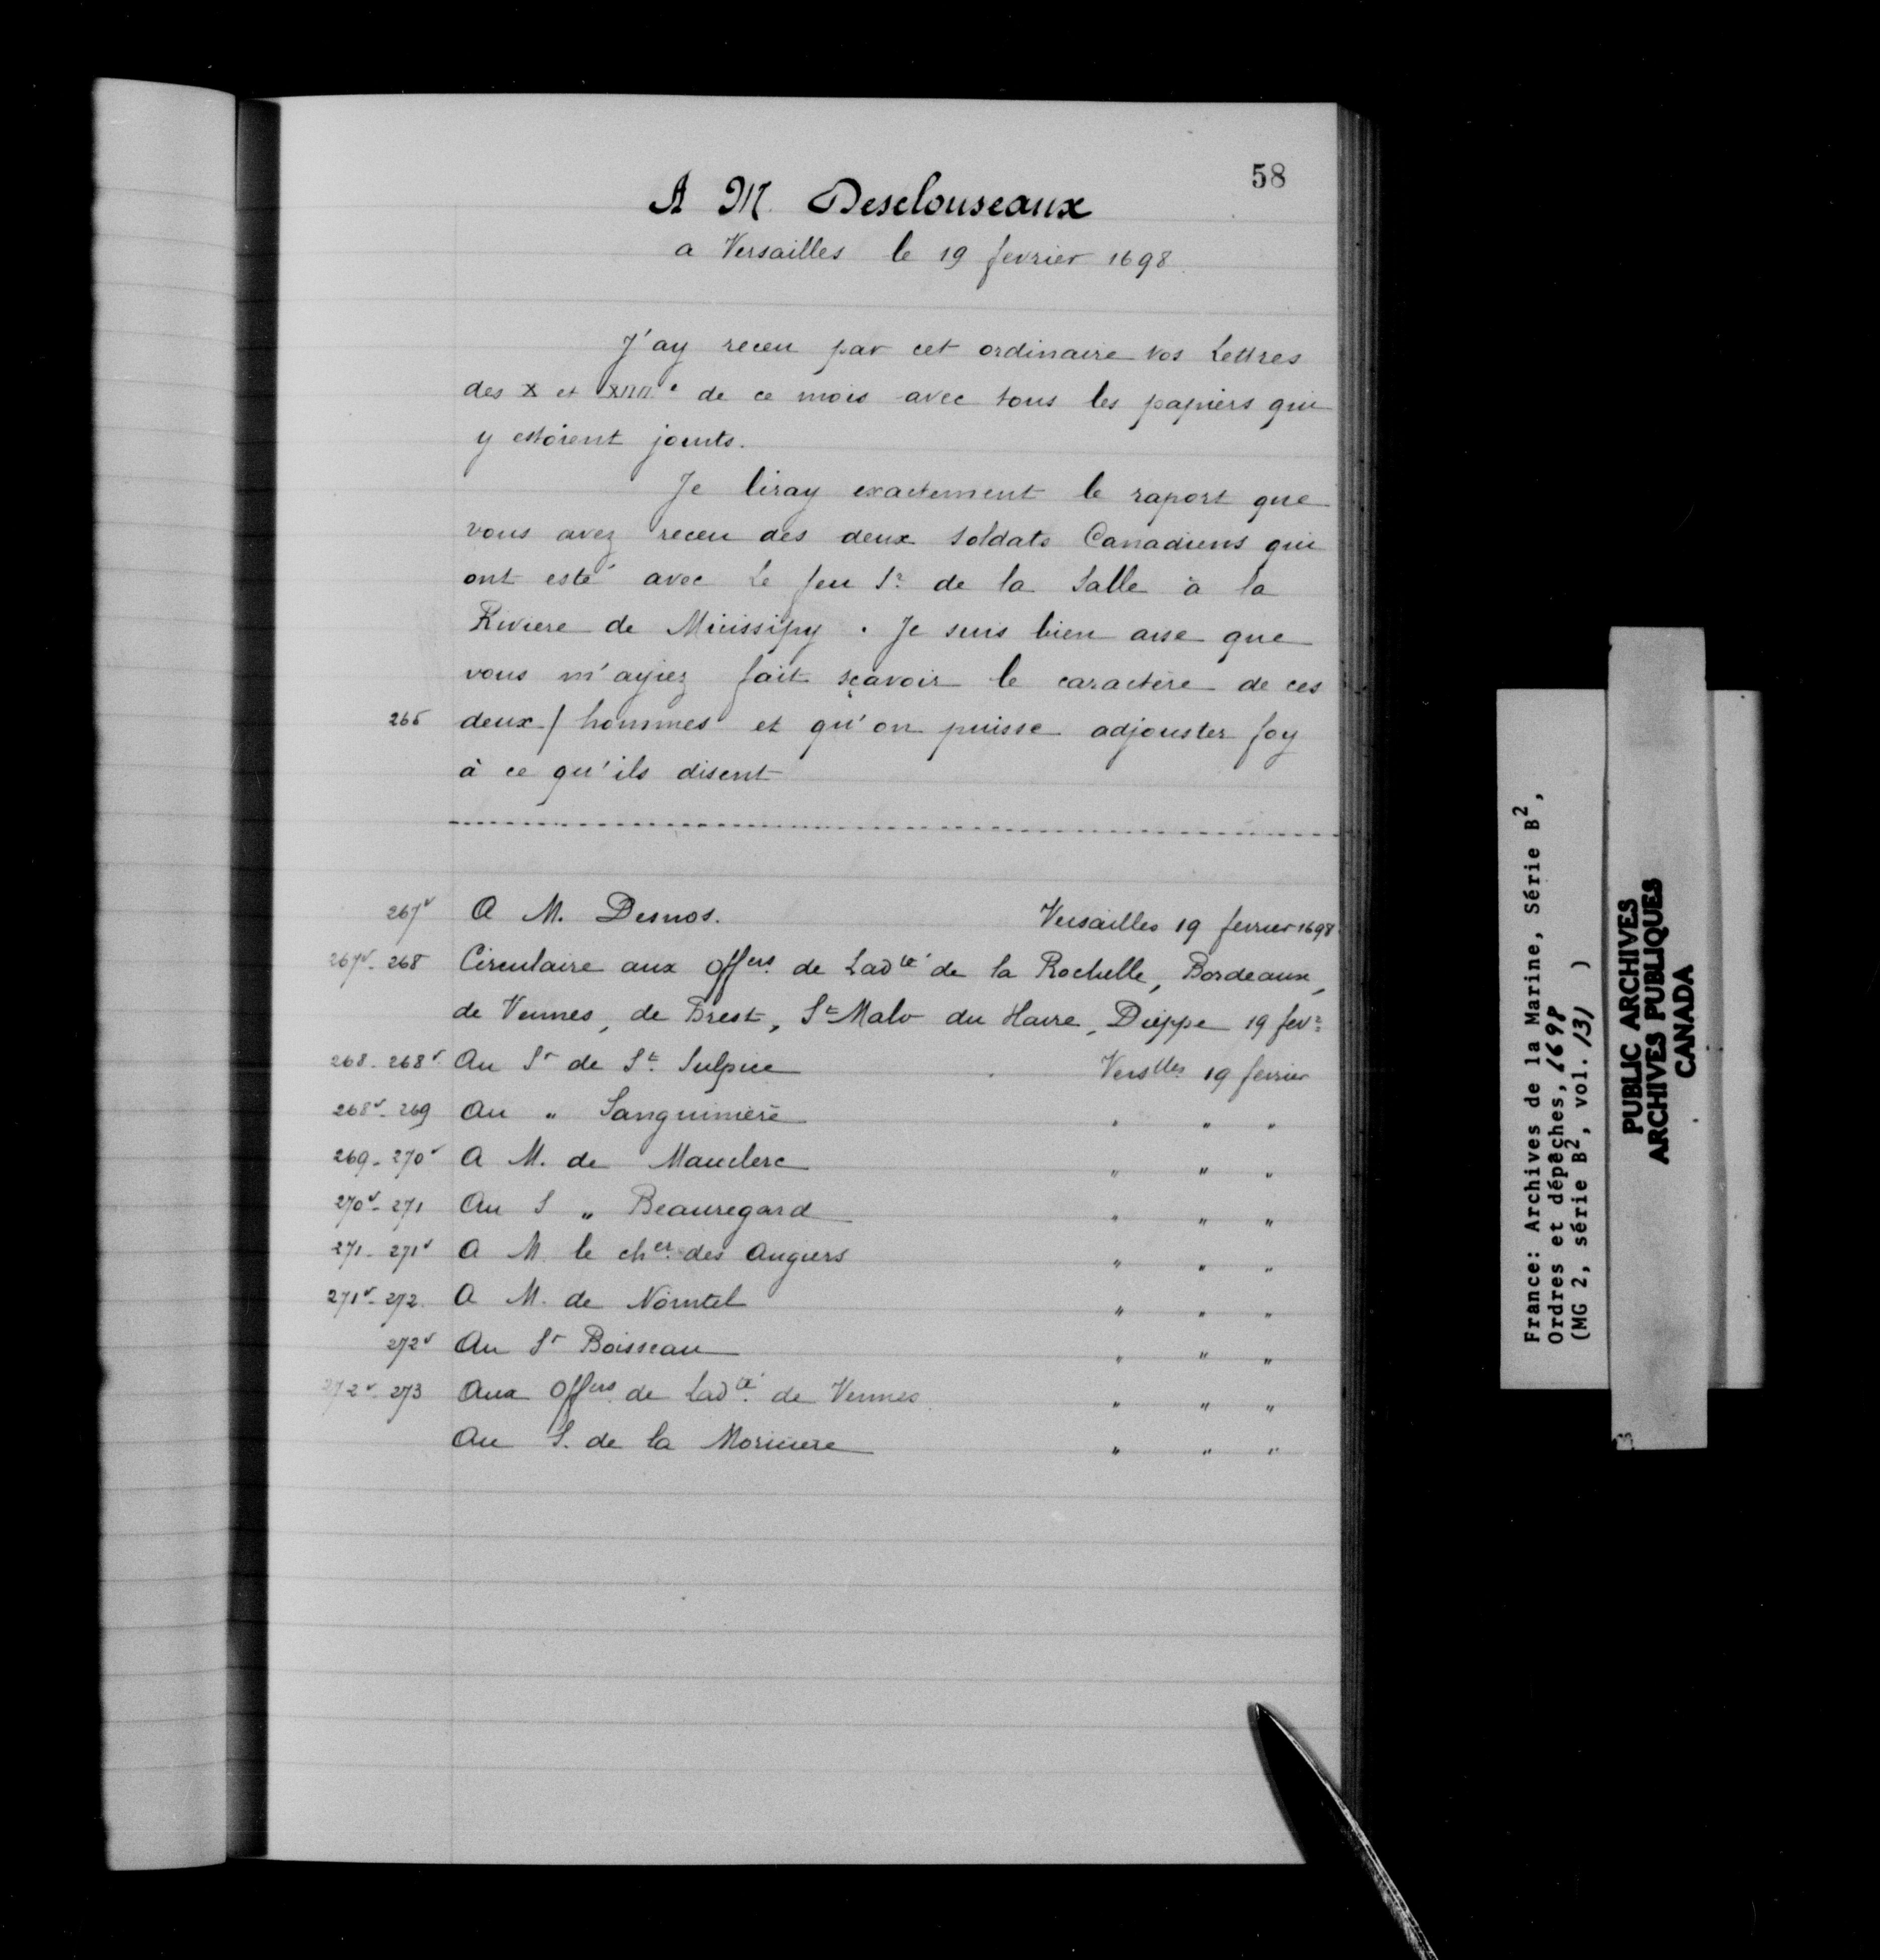 58
A M. Desclouseaux
a Versailles le 19 fevrier 1698.
J'ay receu par cet ordinaire vos Lettres
des X et XIIIe de ce mois avec tous les papiers qui
y estoient joints.
Je liray exactement le raport que
vous avez receu des deux soldats Canadiens qui
ont esté avec Le feu Sr de la Salle à la
Riviere de Missipy. Je suis bien aise que
vous m'ayiez fait sçavoir le caractère de ces
265 deux / hommes et qu'on puisse adjouster foy
à ce qu'ils disent
267v A M. Desnos. Versailles 19 fevrier 1698
267v-268 Circulaire aux offers de Ladté de la Rochelle, Bordeaux,
de Vennes, de Brest, St Malo du Havre, Dieppe 19 fevr
268-268v Au Sr de St Sulpice Verslles 19 fevrier
268v-269 Au " Sanguiniere " " "
269-270v A M. de Mauclerc " " "
270v-271 Au S " Beauregard " " "
271-271v A M. le cher des Augiers " " "
271v-272. A M. de Nointel " " "
272v Au Sr Boisseau " " "
272v-273 Aux Offers de Ladté de Vennes. " " "
Au S. de la Moriniere " " "
France: Archives de la Marine, Série B2,
Ordres et dépêches, 1698
(MG 2, série B2, vol. 131 )
PUBLIC ARCHIVES
ARCHIVES PUBLIQUES
CANADA